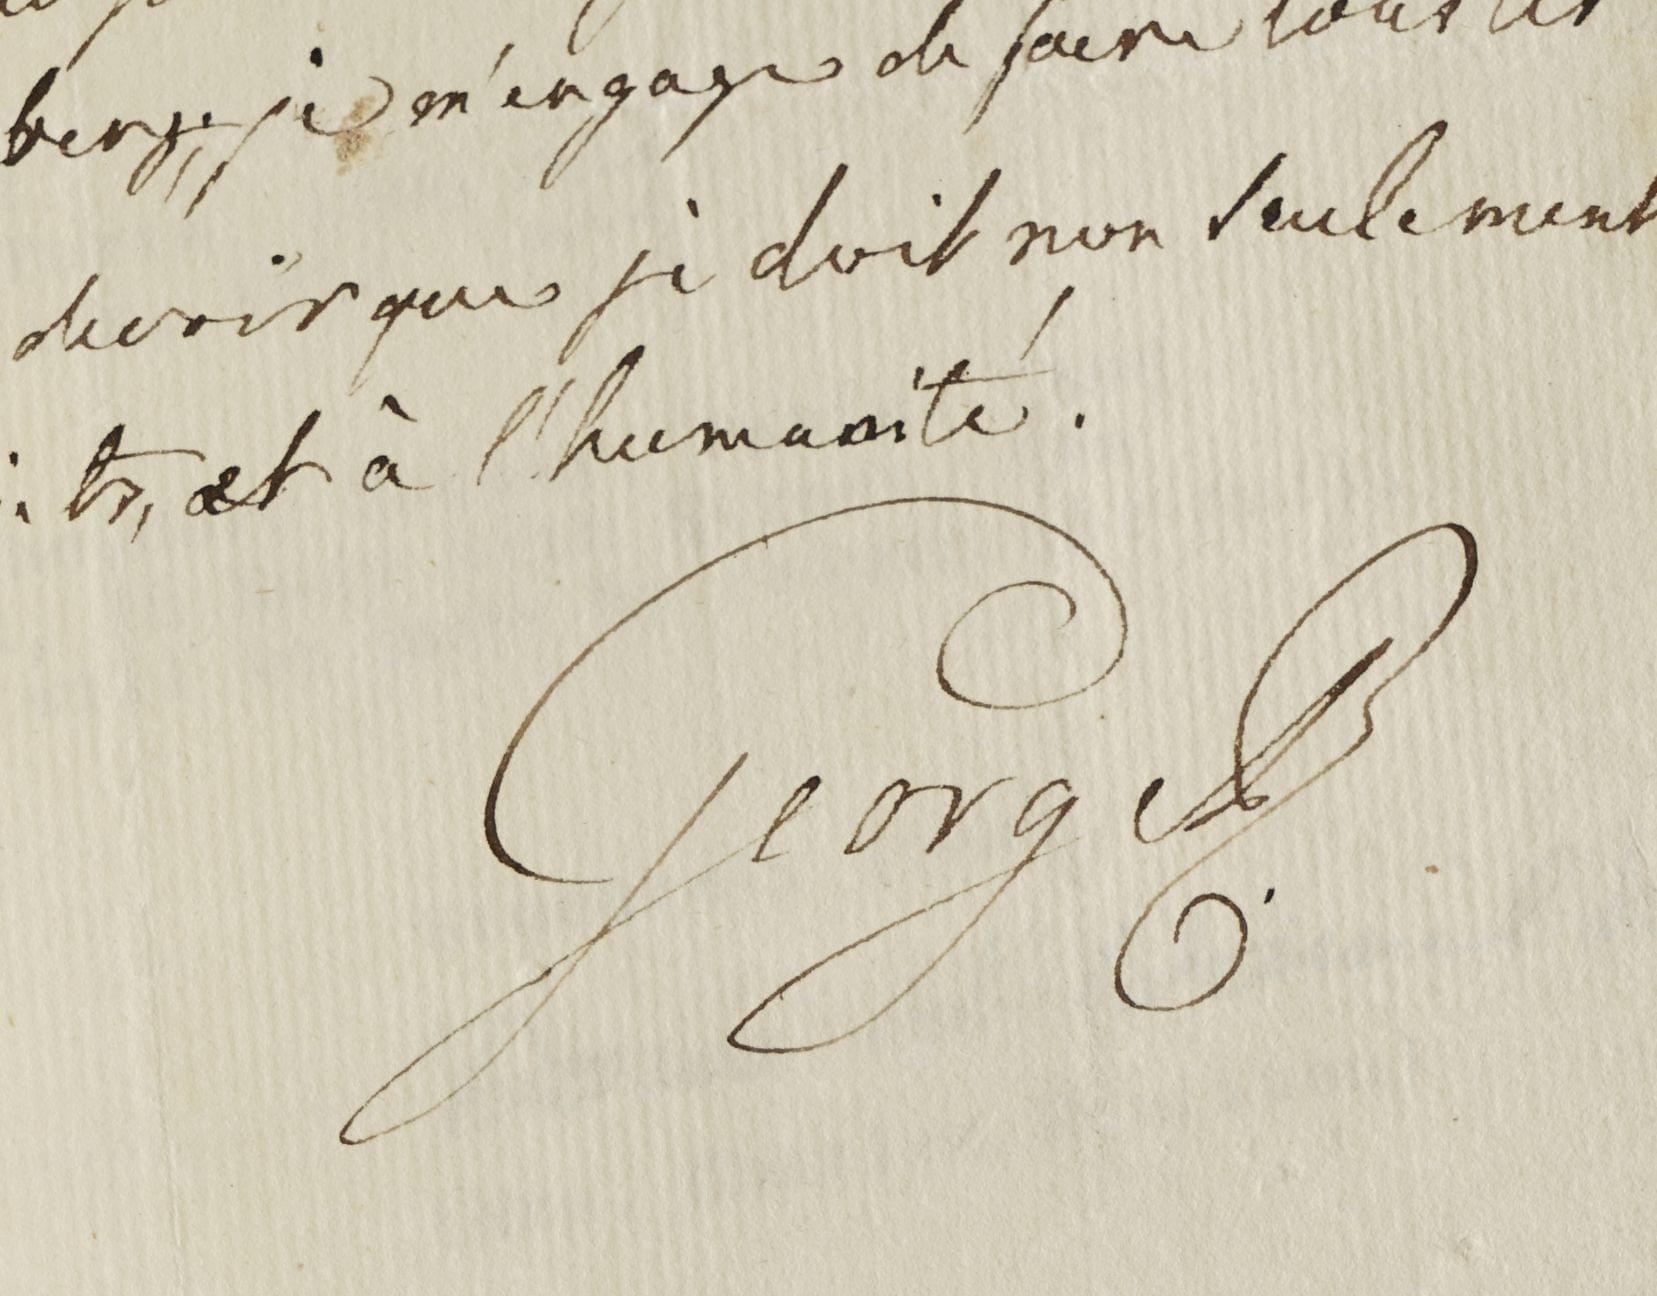 berg; je m'engage de faire tous les
devoir que je doit non seulement
et à l'humanité.
George R.